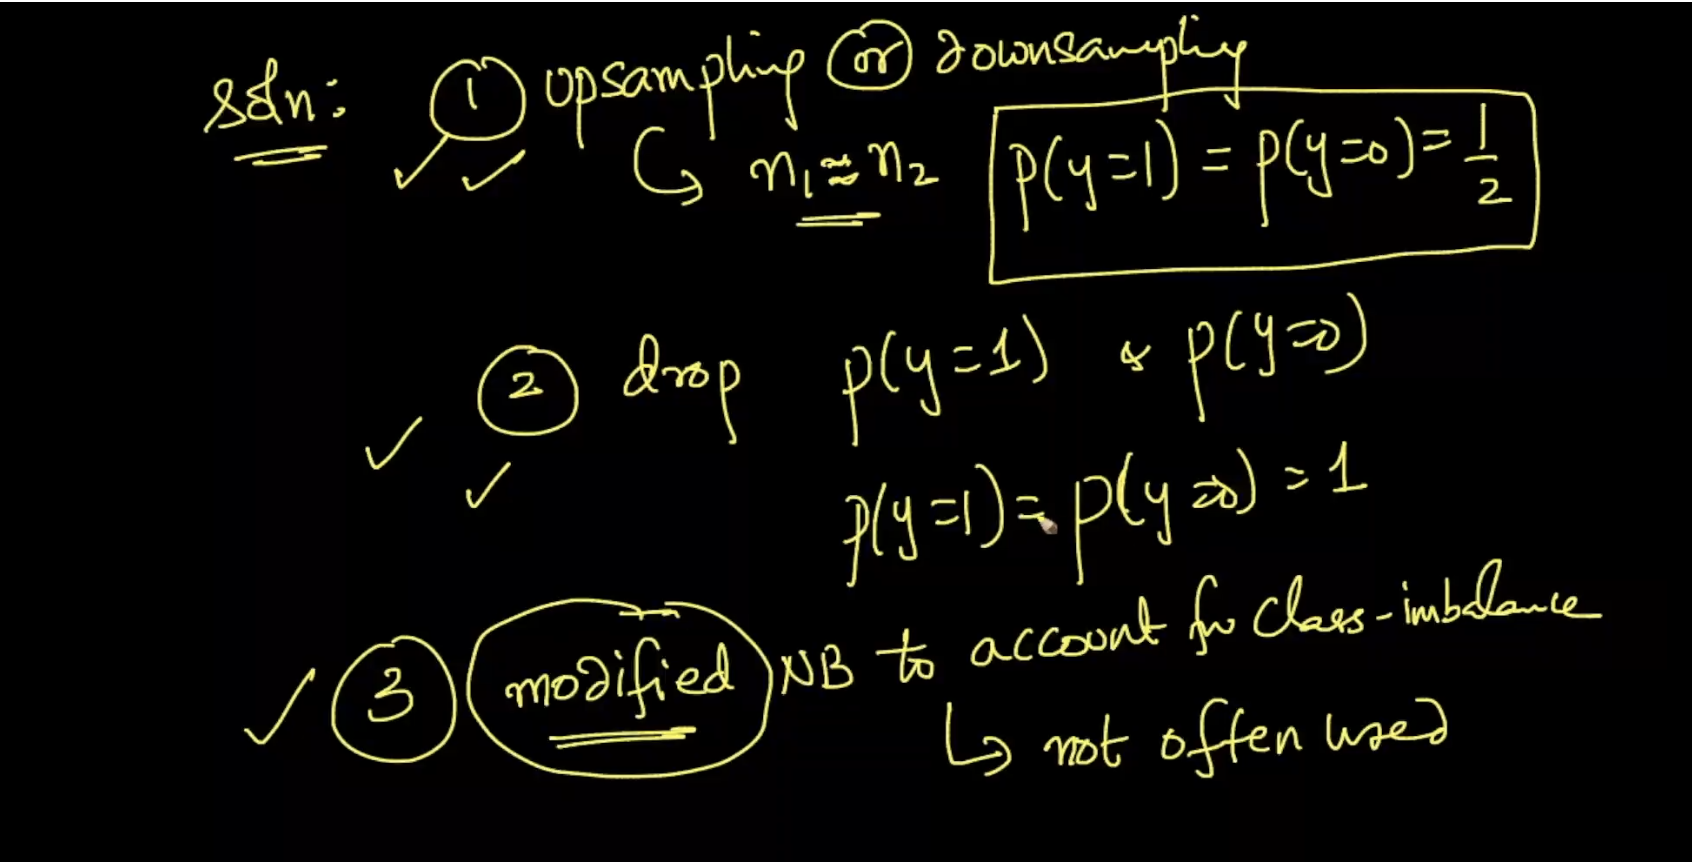 soln: ① upsampling or downsampling
↳ n₁ ≈ n₂ p(y=1) = p(y=0) = 1/2
② drop p(y=1) & p(y=0)
p(y=1) = p(y=0) = 1
③ modified NB to account for class-imbalance
↳ not often used